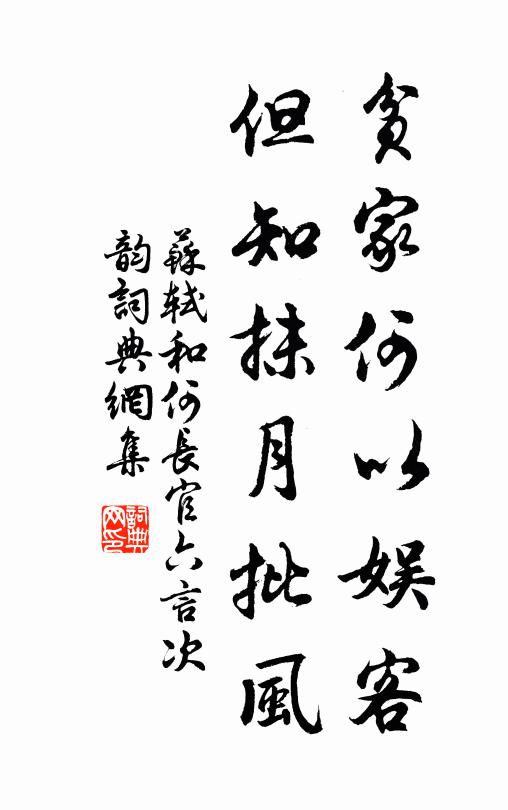 貧家何以娛客
但知抹月批風
蘇軾和何長官六言次
韵詞典網集
詞典
网印